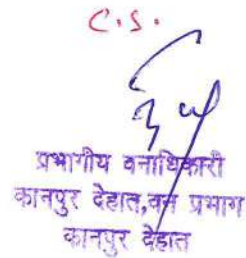 C.S.
प्रभागीय वनाधिकारी
कानपुर देहात,वन प्रभाग
कानपुर देहात